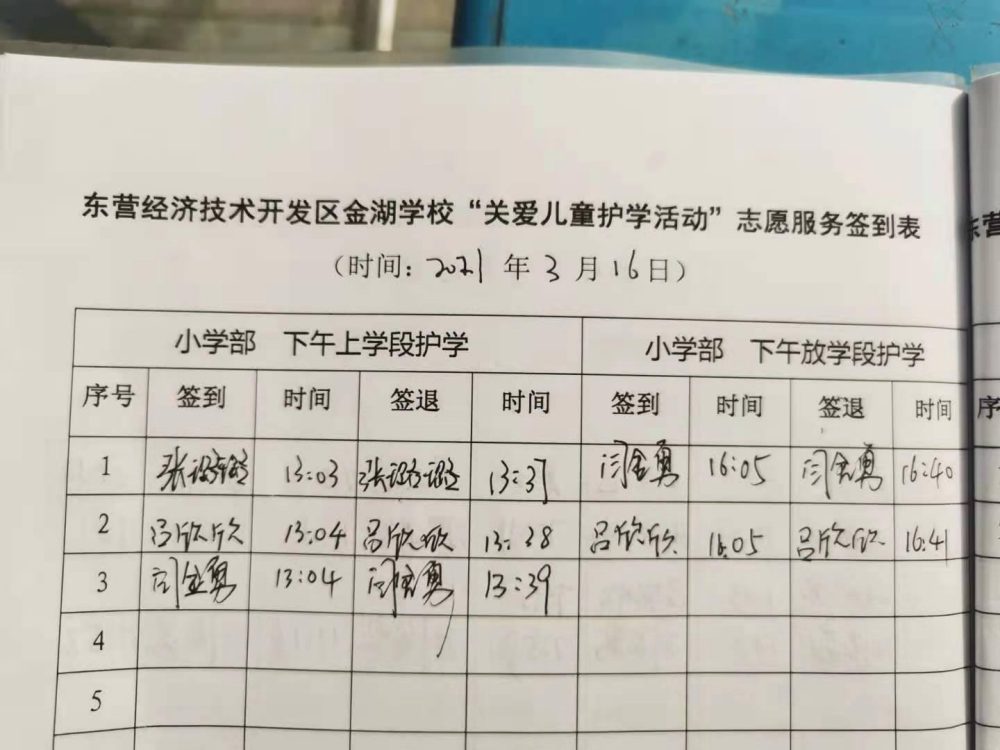 东营经济技术开发区金湖学校“关爱儿童护学活动”志愿服务签到表
（时间：2021年3月16日）
小学部 下午上学段护学 小学部 下午放学段护学
序号 签到 时间 签退 时间 签到 时间 签退 时间
1 张璐璐 13:03 张璐璐 13:37 闫金勇 16:05 闫金勇 16:40
2 吕欣欣 13:04 吕欣欣 13:38 吕欣欣 16:05 吕欣欣 16:41
3 闫金勇 13:04 闫金勇 13:39
4
5
东营
序